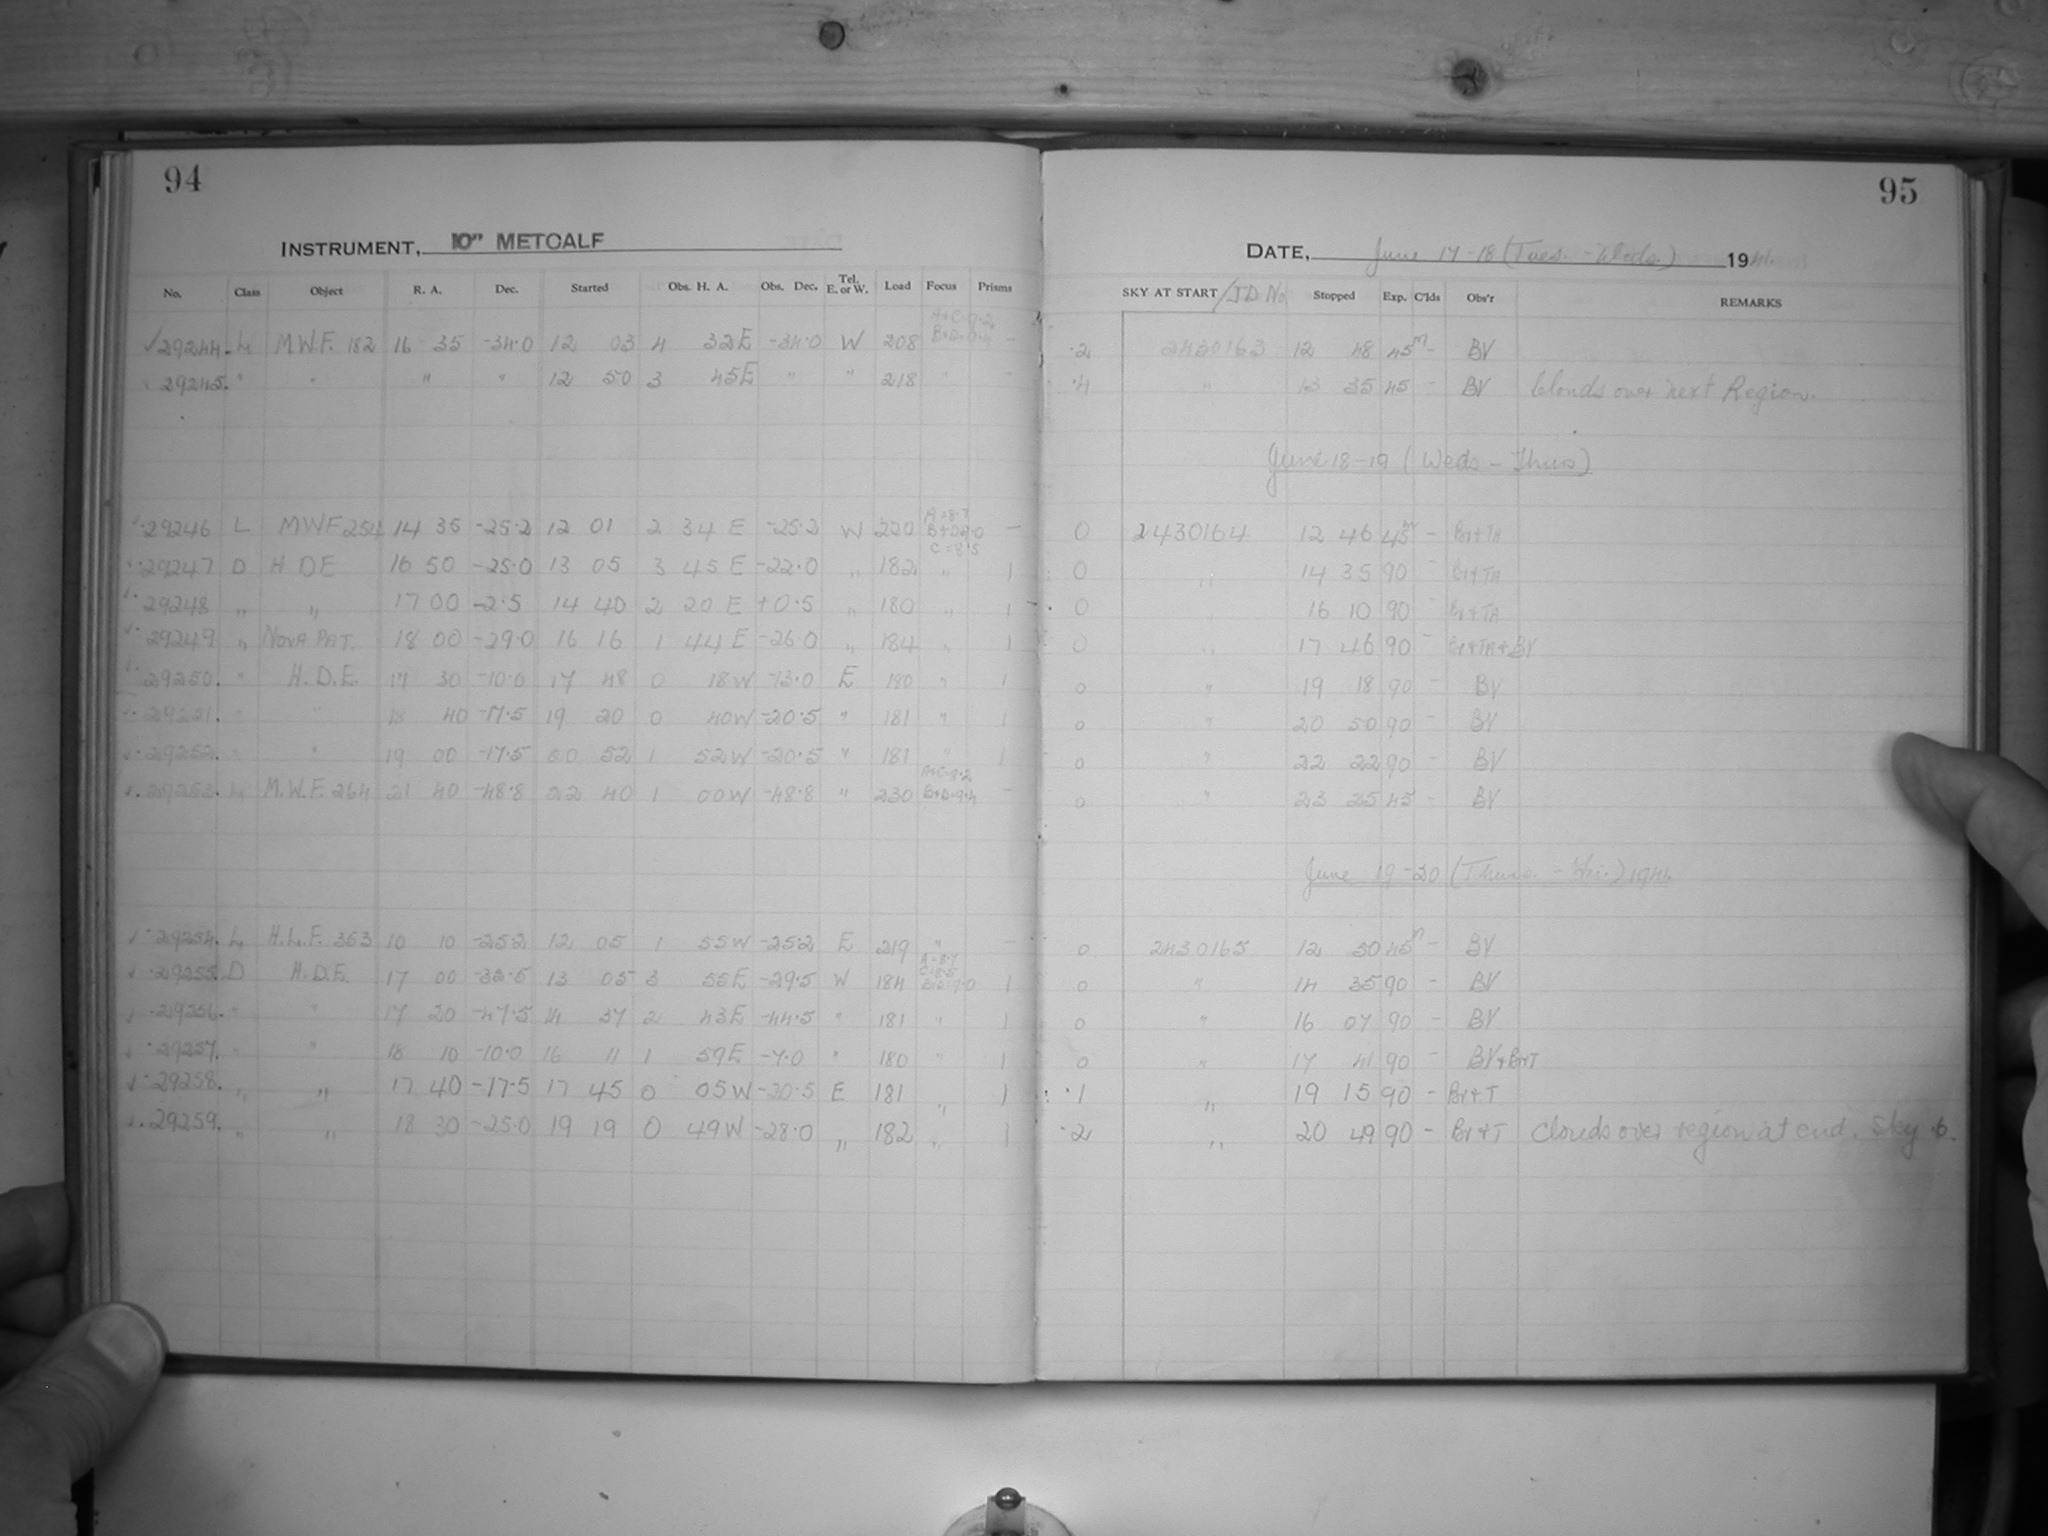 94
INSTRUMENT, 10" METCALF
No. Class Object R. A. Dec. Started Obs. H. A. Obs. Dec. Tel. E. or W. Load Focus Prisms
✓29244. L M.W.F. 182 16 35 -34.0 12 03 4 32E -34.0 W 208 A+C=9.2 B+D=9.4 -
29245. " " " " 12 50 3 45E " " 218 " "
29246 L MWF 254 14 35 -25.2 12 01 2 34 E -25.2 W 220 A=8.7 B+D9.0 C=8.5 -
29247 D H DE 16 50 -25.0 13 05 3 45 E -22.0 " 182 " 1
29248 " " 17 00 -2.5 14 40 2 20 E +0.5 " 180 " 1
29249 " NOVA PAT. 18 00 -29.0 16 16 1 44 E -26.0 " 184 " 1
29250. " H.D.E. 17 30 -10.0 17 48 0 18W -13.0 E 180 " 1
29251. " " 18 40 -17.5 19 20 0 40W -20.5 " 181 " 1
29252. " " 19 00 -17.5 20 52 1 52W -20.5 " 181 " 1
29253. L M.W.F. 264 21 40 -48.8 22 40 1 00W -48.8 " 230 A+C=9.2 B+D=9.4 -
29254. L H.L.F. 353 10 10 -25.2 12 05 1 55W -25.2 E 219 " -
29255. D H.D.E. 17 00 -32.5 13 05 3 55E -29.5 W 184 A=8.7 C=8.5 B+D=9.0 1
29256. " " 17 20 -47.5 14 37 2 43E -44.5 " 181 " 1
29257. " " 18 10 -10.0 16 11 1 59E -7.0 " 180 " 1
29258. " " 17 40 -17.5 17 45 0 05W -20.5 E 181 " 1
29259. " " 18 30 -25.0 19 19 0 49W -28.0 " 182 " 1
95
DATE, June 17-18 (Tues. - Weds.) 1941.
SKY AT START / JD No. Stopped Exp. C'lds Obs'r REMARKS
.2 2430163 12 48 45m - BV
.4 " 13 35 45 - BV Clouds over next Region.
June 18-19 (Weds - Thurs)
0 2430164 12 46 45m - Br+TA
0 " 14 35 90 - Br+TA
0 " 16 10 90 - Br+TA
0 " 17 46 90 - Br+TA+BV
0 " 19 18 90 - BV
0 " 20 50 90 - BV
0 " 22 22 90 - BV
0 " 23 25 45 - BV
June 19-20 (Thurs. - Fri.) 1941.
0 2430165 12 50 45m - BV
0 " 14 35 90 - BV
0 " 16 07 90 - BV
0 " 17 41 90 - BV+Br+T
.1 " 19 15 90 - Br+T
.2 " 20 49 90 - Br+T Clouds over region at end. Sky .6.